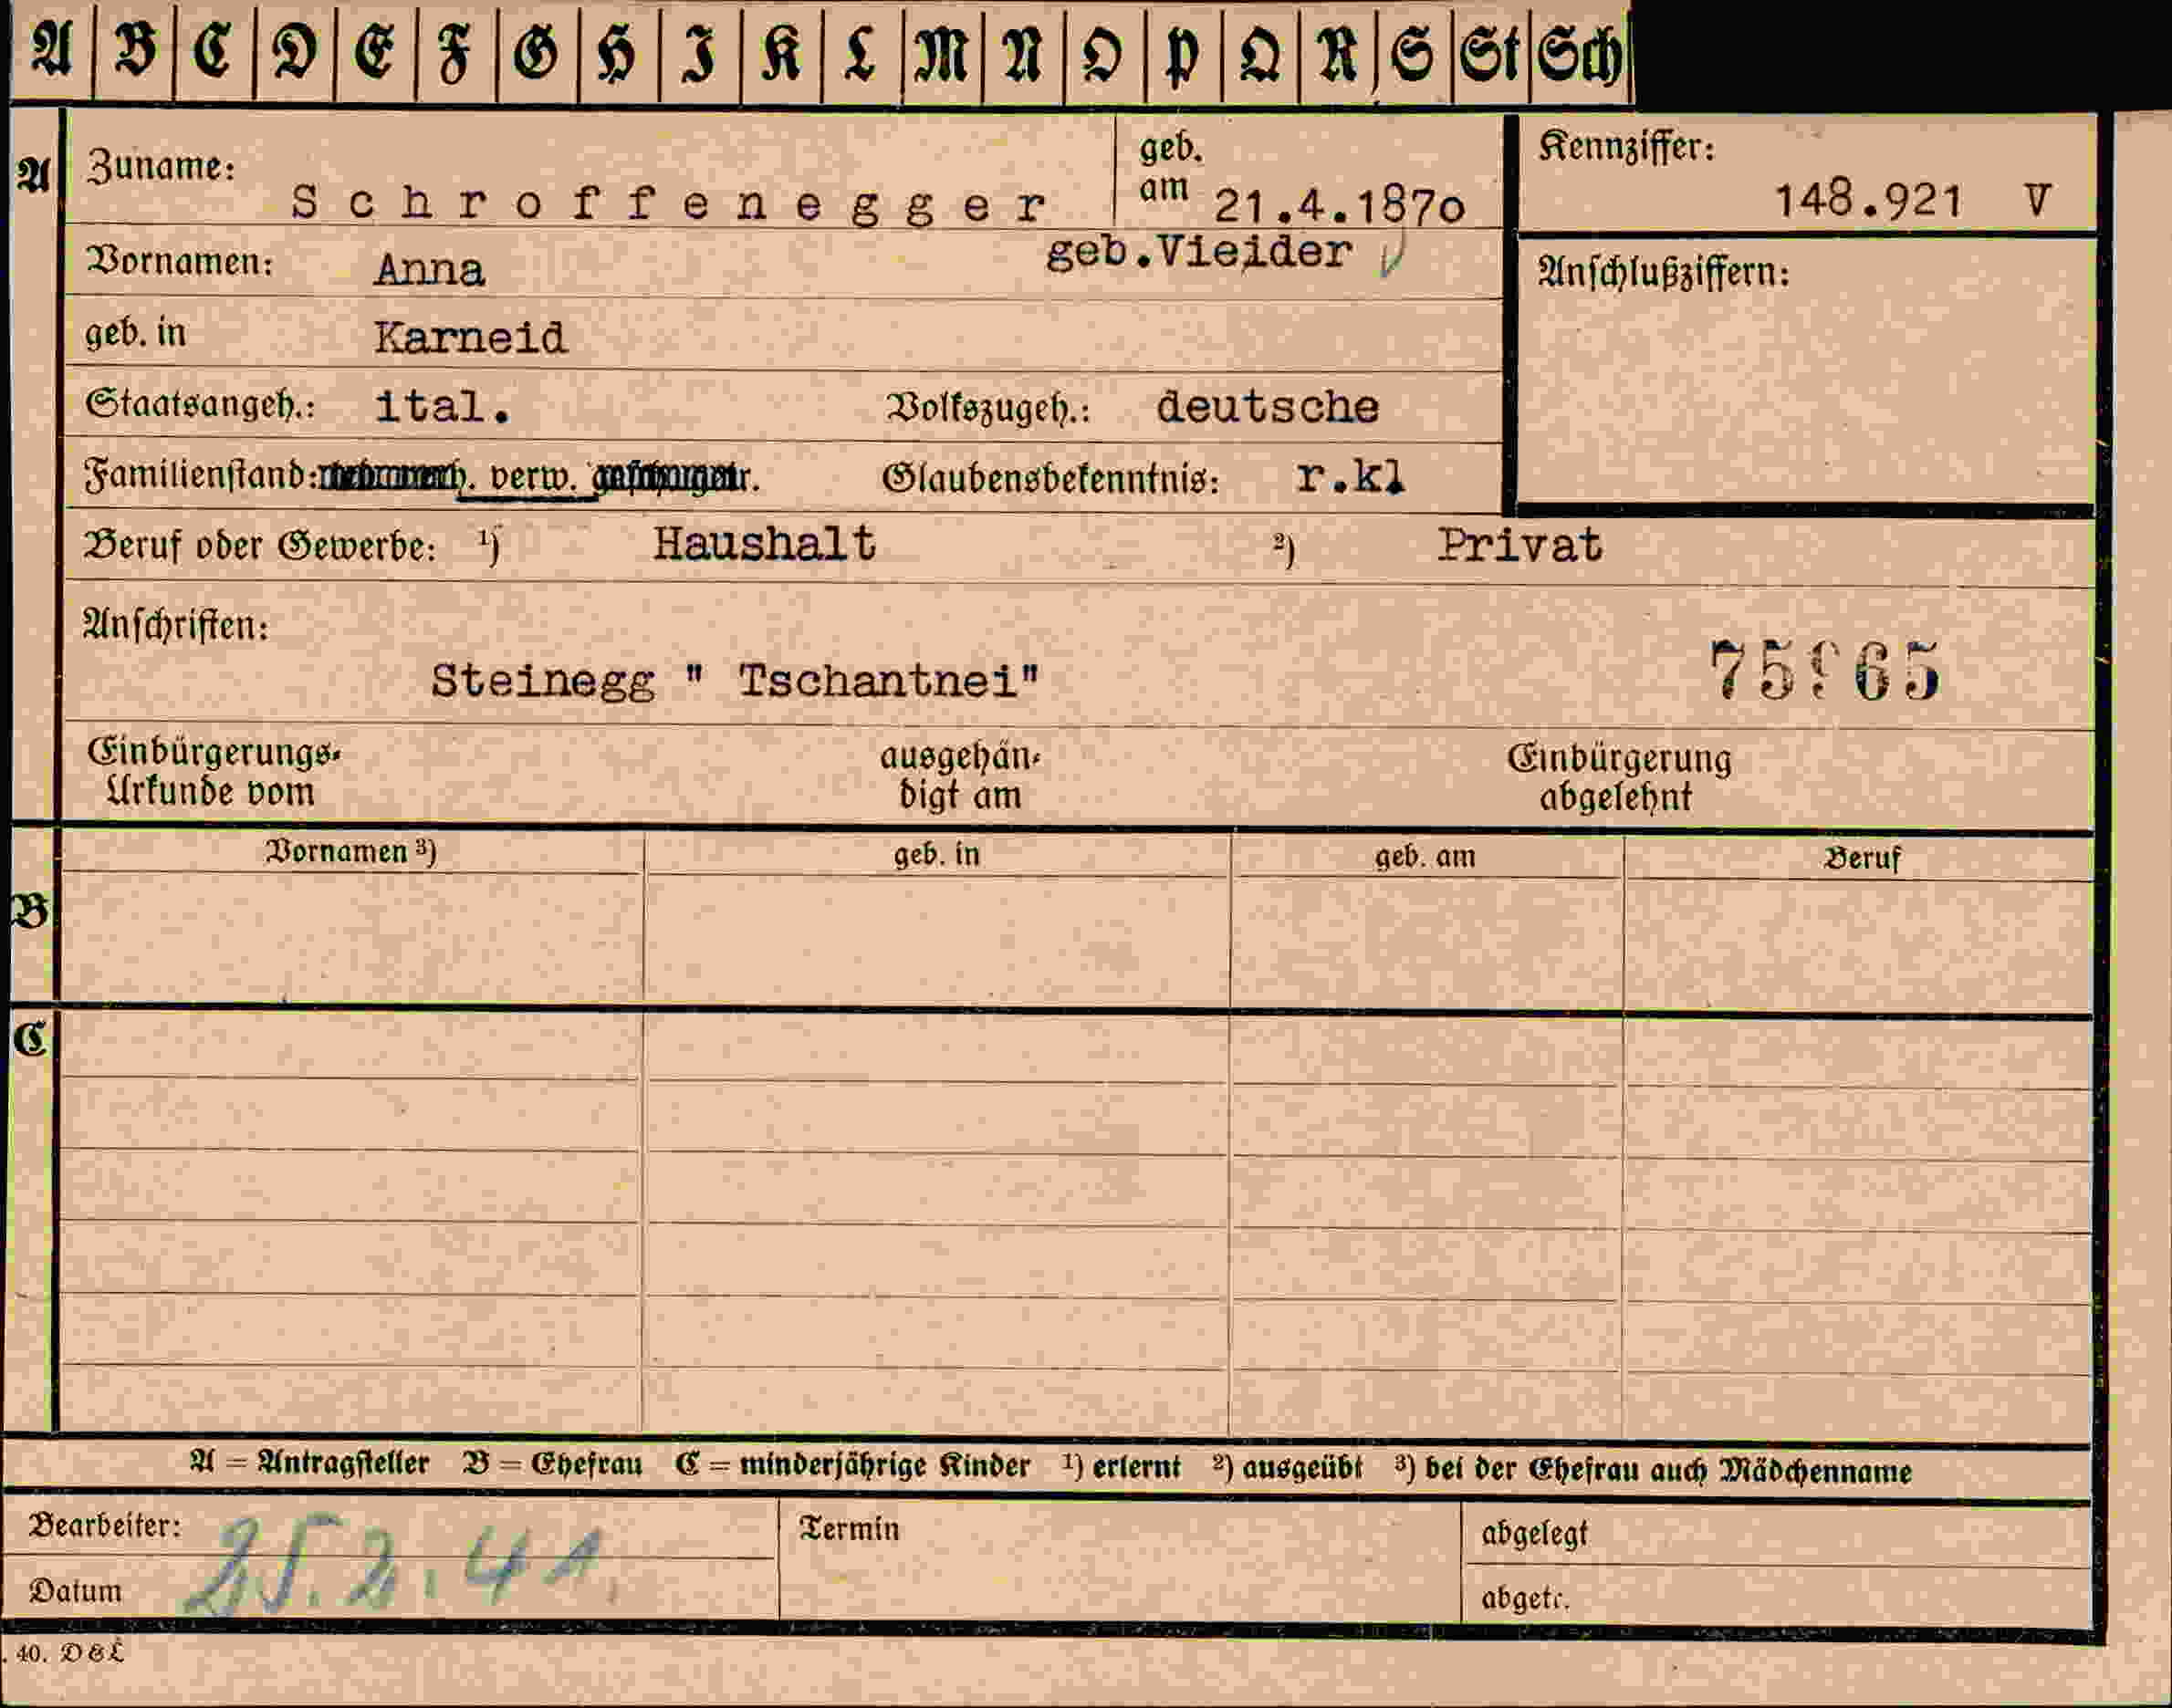 A B C D E F G H I K L M N O P Q R S St Sch
A
Zuname: Schroffenegger geb. am 21.4.1870
Kennziffer: 148.921 V
Vornamen: Anna geb.Vieider
Anschlußziffern:
geb. in Karneid
Staatsangeh.: ital. Volkszugeh.: deutsche
Familienstand: verw. Glaubensbekenntnis: r.kl
Beruf oder Gewerbe: ¹) Haushalt ²) Privat
Anschriften:
Steinegg " Tschantnei"
Einbürgerungs- Urkunde vom ausgehän- digt am Einbürgerung abgelehnt
Vornamen ³) geb. in geb. am Beruf
B
C
A = Antragsteller B = Ehefrau C = minderjährige Kinder ¹) erlernt ²) ausgeübt ³) bei der Ehefrau auch Mädchenname
Bearbeiter: Termin abgelegt
Datum 25.2.41. abgetr.
. 40. D & L